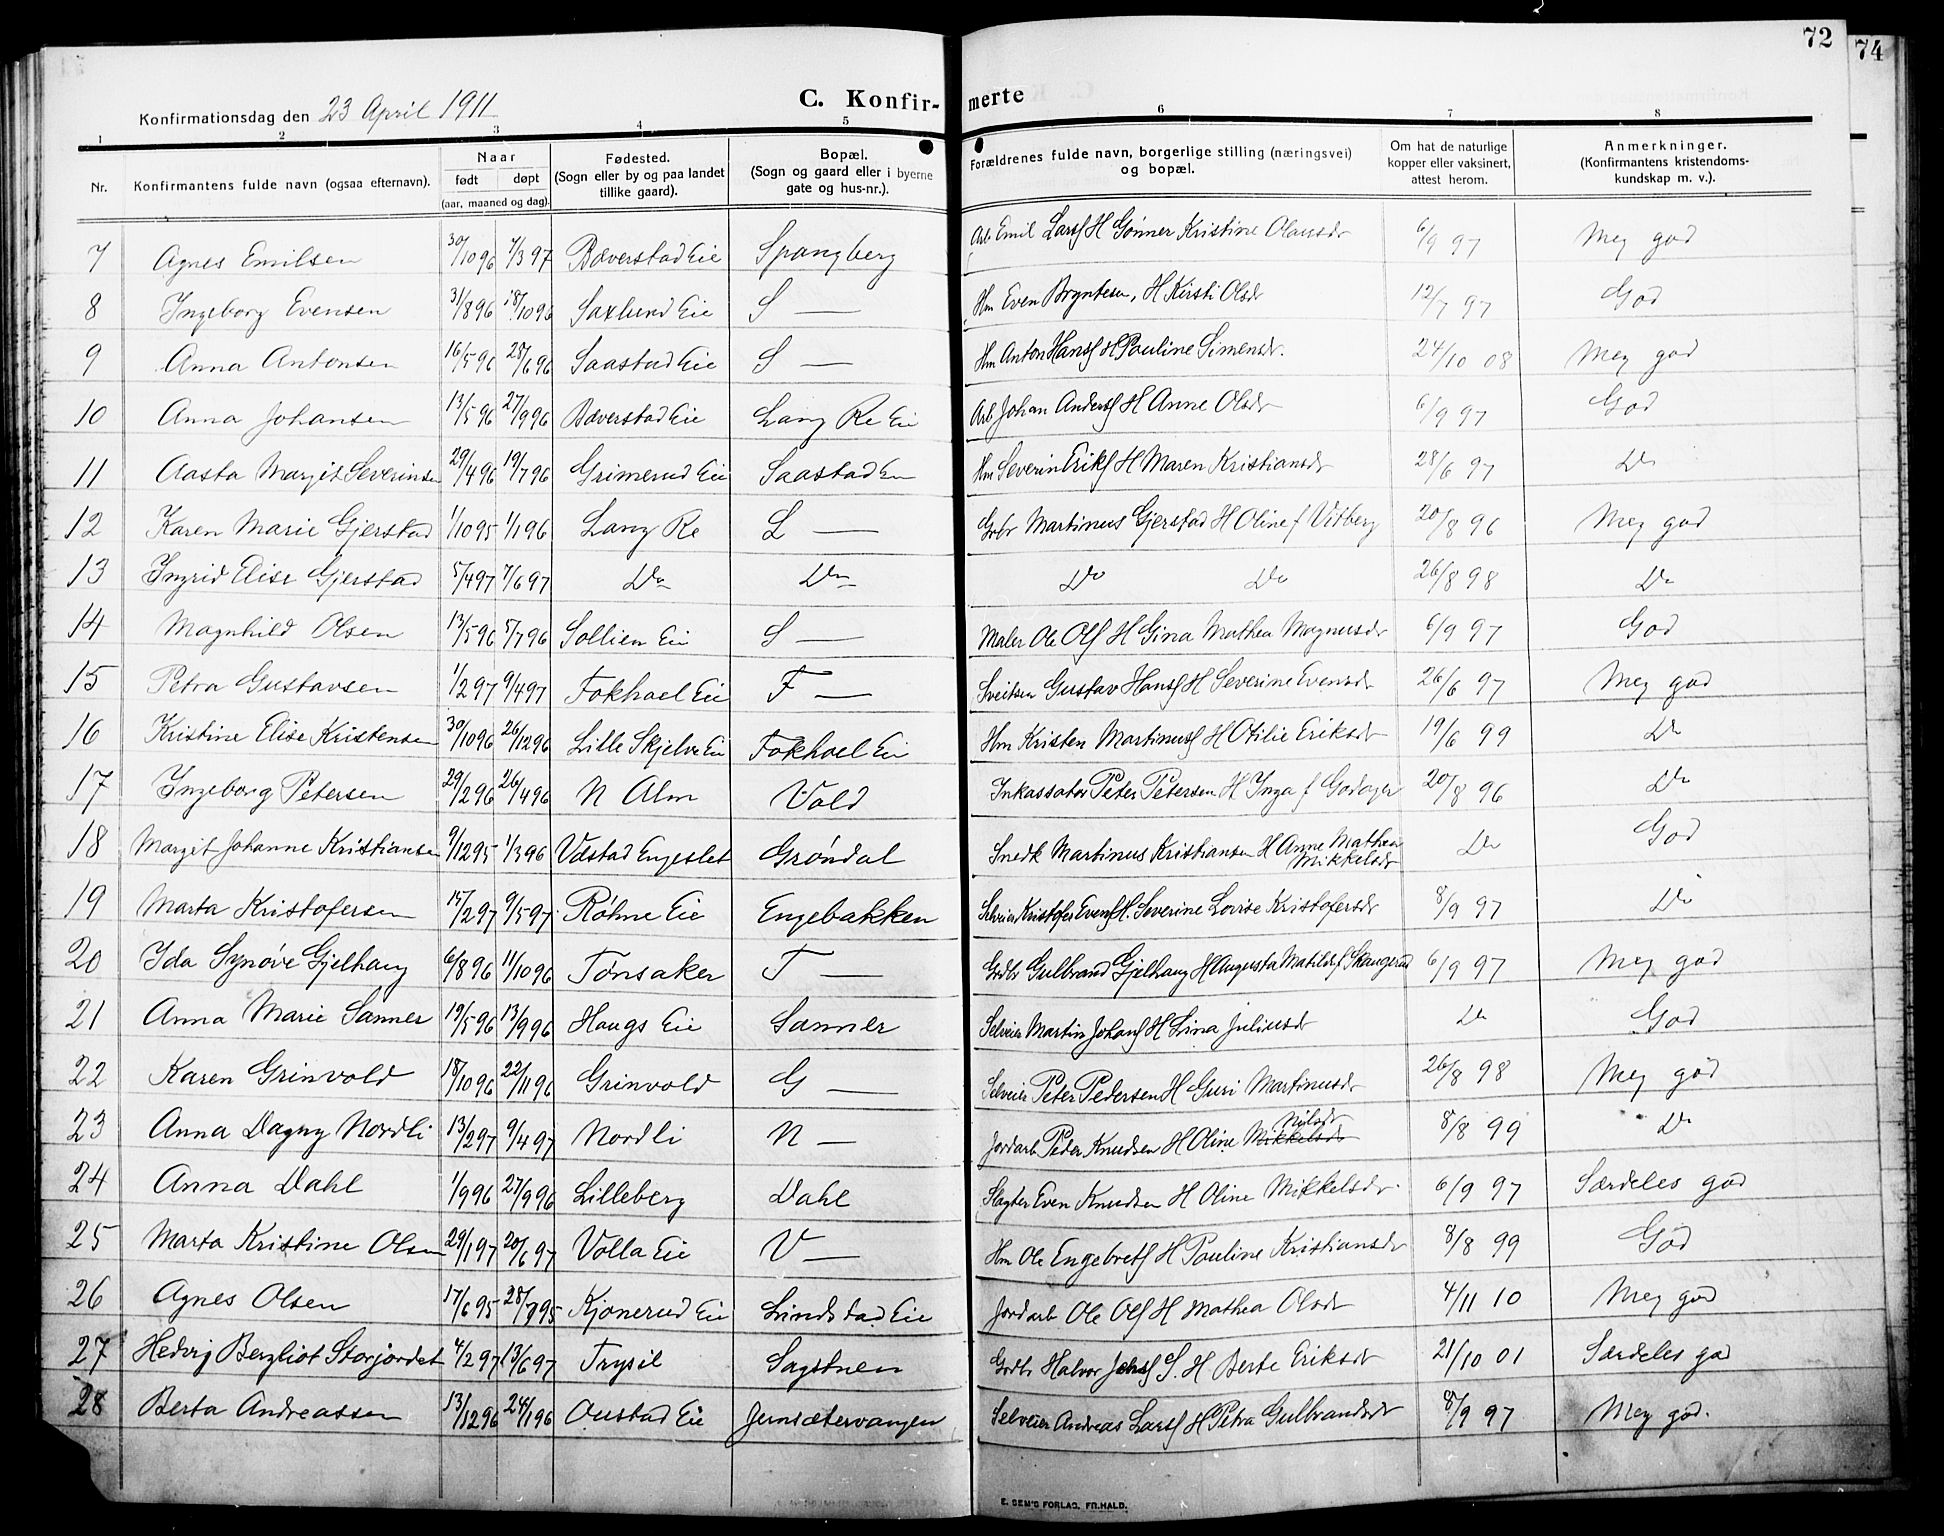 72
74
C. Konfir- merte
Konfirmationsdag den 23 April 1911
1 2 3 4 5 6 7 8
Nr. Konfirmantens fulde navn (ogsaa efternavn). Naar født døpt (aar, maaned og dag). Fødested. (Sogn eller by og paa landet tillike gaard). Bopæl. (Sogn og gaard eller i byerne gate og hus-nr.). Forældrenes fulde navn, borgerlige stilling (næringsvei) og bopæl. Om hat de naturlige kopper eller vaksinert, attest herom. Anmerkninger. (Konfirmantens kristendoms-kundskap m. v.).
7 Agnes Emilsen 30/10 96 7/3 97 Bæverstad Eie Spangberg Arb Emil Larss H Gønner Kristine Olausdr 6/9 97 Meg god
8 Ingeborg Evensen 31/8 96 18/10 96 Saxlund Eie S — Hm Even Bryntesen, H Kirsti Olsdr 12/7 97 God
9 Anna Antonsen 16/5 96 28/6 96 Saastad Eie S — Hm Anton Hanss H Pauline Simensdr. 24/10 08 Meg god
10 Anna Johansen 13/5 96 27/9 96 Bæverstad Eie Lang Re Eie Arb Johan Anderss H Anne Olsdr 6/9 97 God
11 Aasta Margit Severinsen 29/4 96 19/7 96 Grimerud Eie Saastad En Hm Severin Eriks H Maren Kristiansdr 28/6 97 Do
12 Karen Marie Gjerstad 1/10 95 1/1 96 Lang Re L — Grbr Martinus Gjerstad H Oline f Vitberg 20/8 96 Meg god
13 Ingrid Elise Gjerstad 5/4 97 7/6 97 Do Do Do Do 26/8 98 Do
14 Magnhild Olsen 13/5 96 5/7 96 Sollien Eie S — Maler Ole Ols H Gina Mathea Magnusdr 6/9 97 God
15 Petra Gustavsen 1/2 97 9/4 97 Fokhoel Eie F — Sveitser Gustav Hanss H Severine Evensdr 26/6 97 Meg god
16 Kristine Elise Kristensen 30/10 96 26/12 96 Lille Skjelve Eie Fokhoel Eie Hm Kristen Martinuss H Otilie Eriksdr 19/6 99 Do
17 Ingeborg Petersen 29/2 96 26/4 96 N Alm Vold Inkassator Peter Petersen H Inga f Godager 20/8 96 Do
18 Margit Johanne Kristiansen 9/12 95 1/3 96 Vdstad Engeslet Grøndal Snedk Martinus Kristiansen H Anne Mathea Mikkelsdr Do God
19 Marta Kristofersen 15/2 97 9/5 97 Røhne Eie Engebakken Selveier Kristofer Evens H. Severine Lovise Kristofersdr 8/9 97 Do
20 Ida Synøve Gjelhaug 6/8 96 11/10 96 Tønsaker T — Grdbr Gulbrand Gjelhaug H Augusta Matilde f Skaugerud 6/9 97 Meg god
21 Anna Marie Sanner 19/5 96 13/9 96 Haugs Eie Sanner Selveier Martin Johans H Lina Juliusdr Do God
22 Karen Grinvold 18/10 96 22/11 96 Grinvold G — Selveier Peter Pedersen H Guri Martinusdr 26/8 98 Meg god
23 Anna Dagny Nordli 13/2 97 9/4 97 Nordli N — Jordarb Peder Knudsen H Oline Mikkelsdr Nilsdr 8/8 99 Do
24 Anna Dahl 1/9 96 27/9 96 Lilleberg Dahl Slagter Even Knudsen H Oline Mikkelsdr. 6/9 97 Særdeles god
25 Marta Kristine Olsen 29/1 97 20/6 97 Volla Eie V — Hm Ole Engebrets H Pauline Kristiansdr 8/8 99 God
26 Agnes Olsen 17/6 95 28/7 95 Kjonerud Eie Lindstad Eie Jordarb Ole Ols H Mathea Olsdr 4/11 10 Meg god
27 Hedvig Bergliot Storjordet 4/2 97 13/6 97 Trysil Sagstuen Grdbr Halvor Jens S. H Berte Eriksdr 21/10 01 Særdeles god
28 Berta Andreassen 13/12 96 24/1 96 Oustad Eie Jernsætervangen Selveier Andreas Larss H Petra Gulbrandsdr 8/9 97 Meg god.
E. SEM'S FORLAG, FR.HALD.